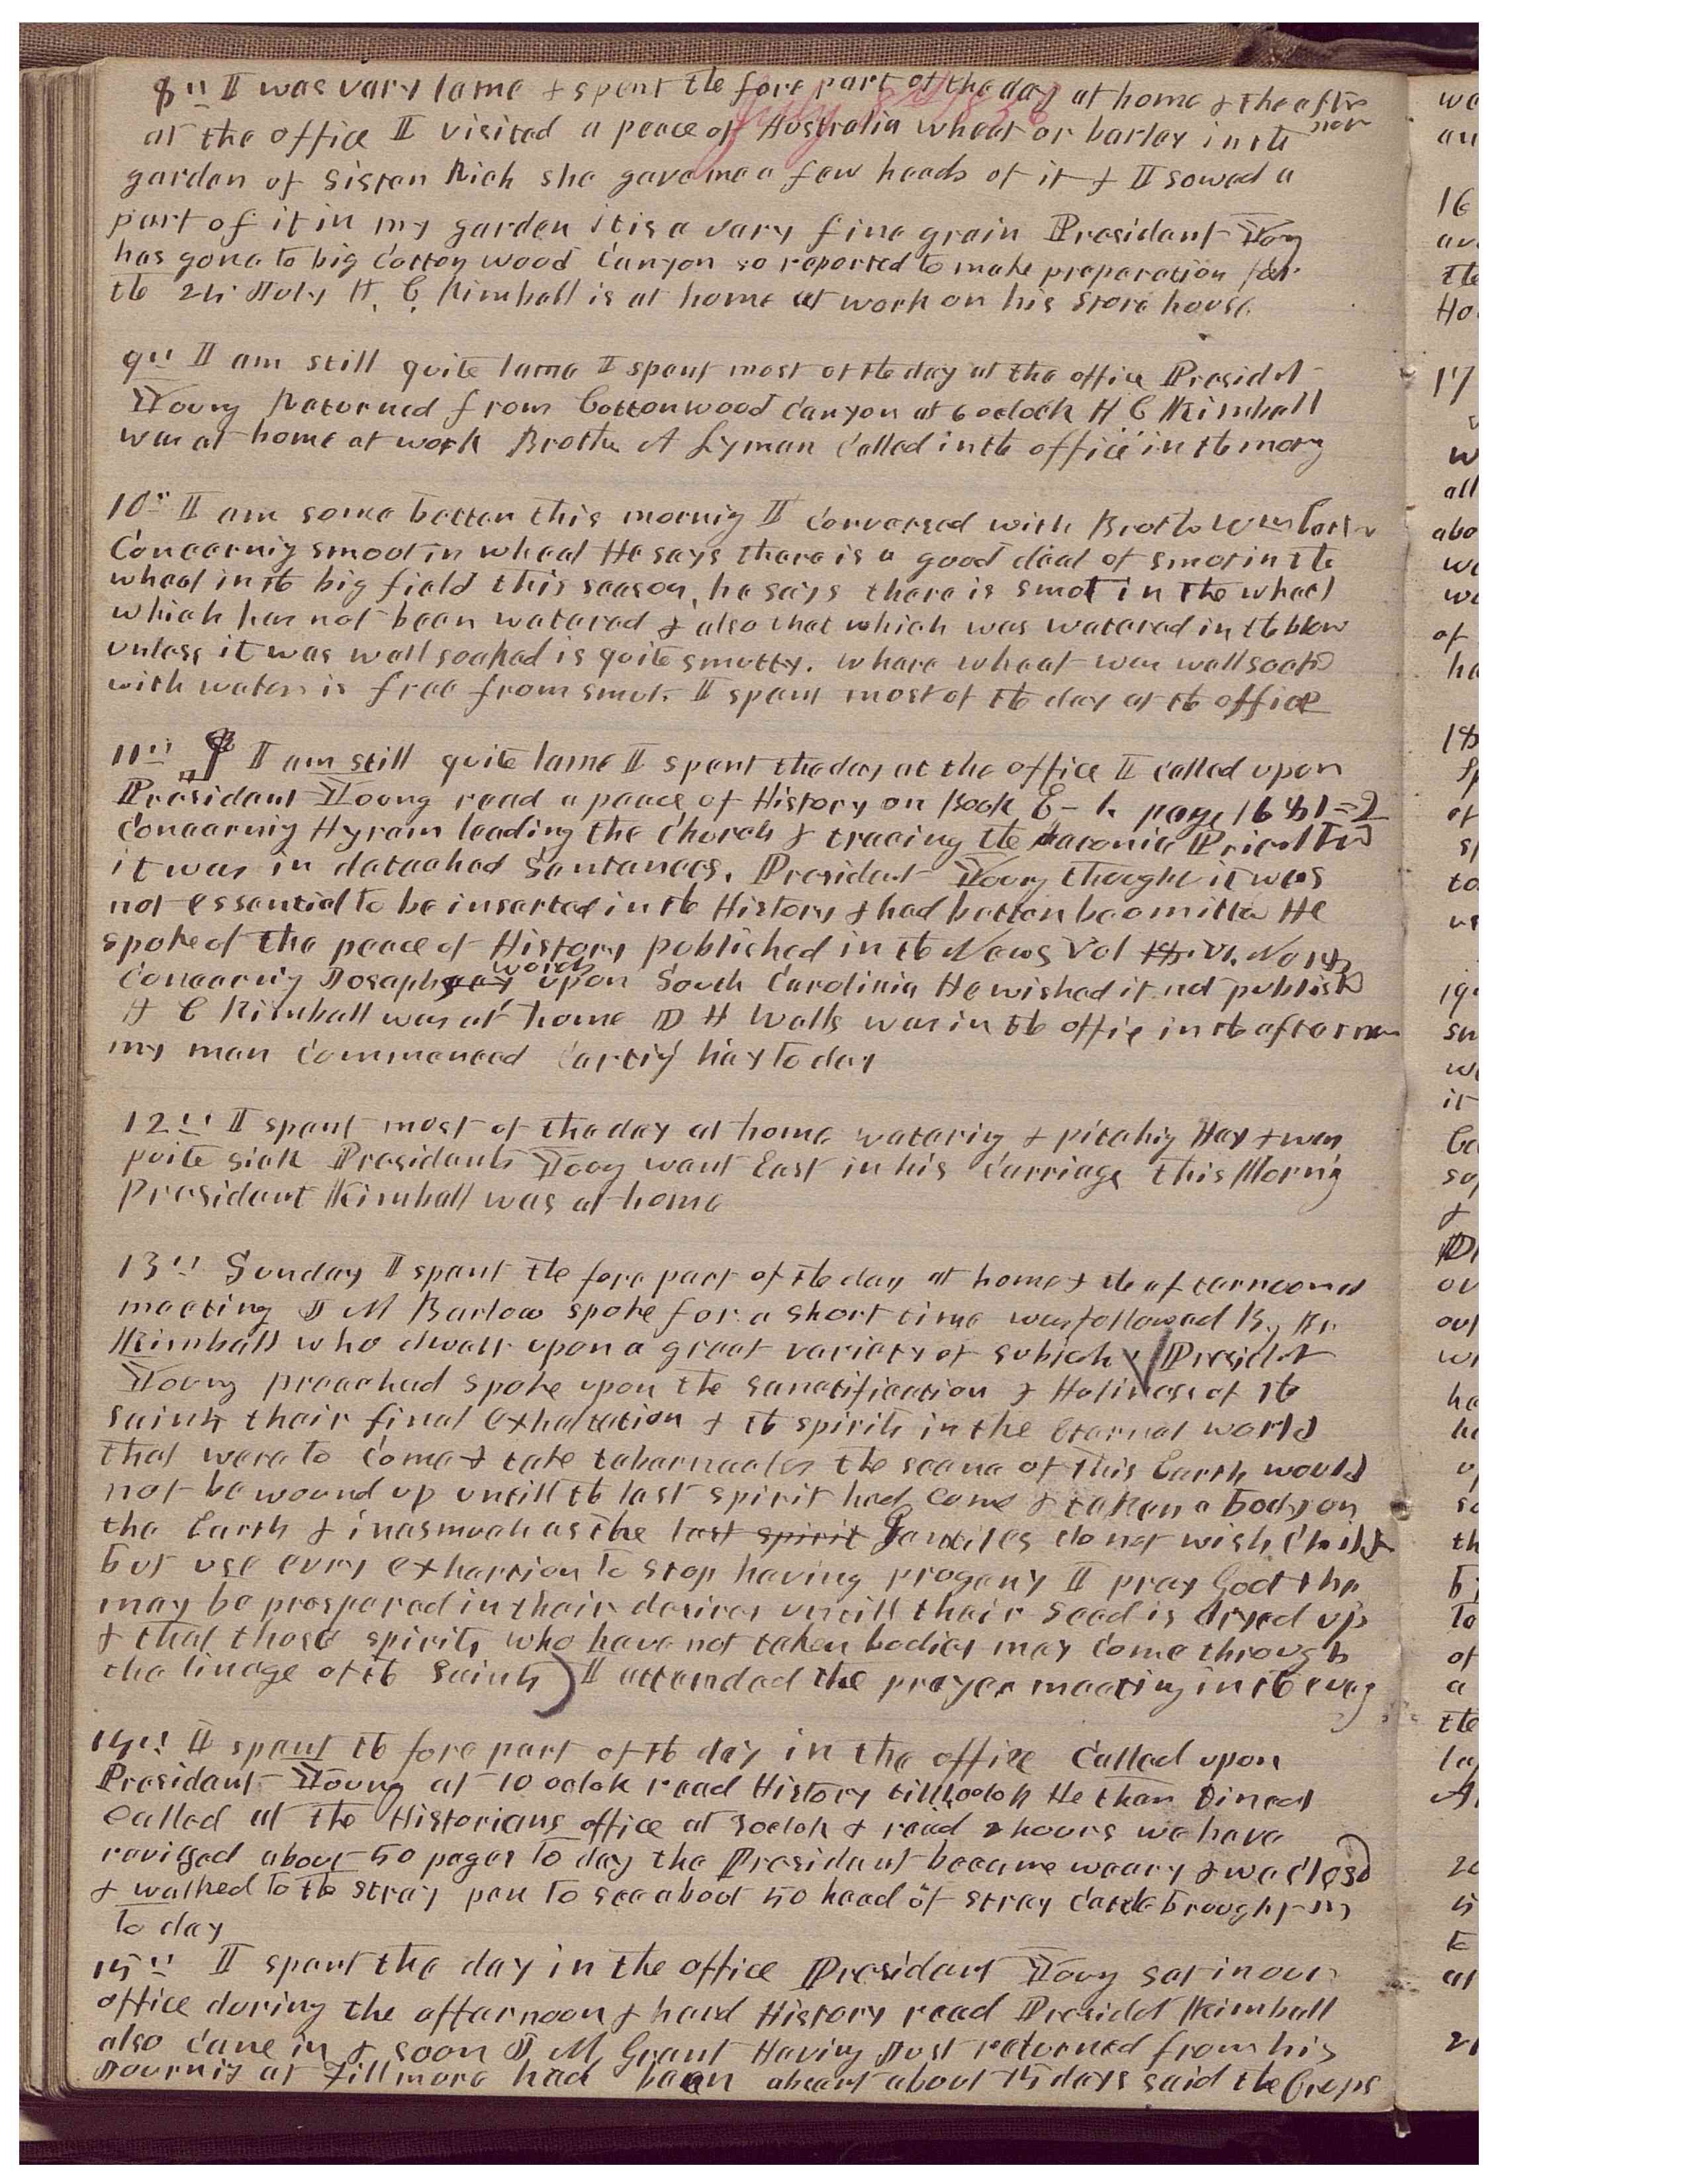 8" I was vary lame & spent the fore part of the day at home & the after
noon
July 8th 1856
at the office I visited a peace of Australia wheat or barley in the
garden of Sister Rich she gave me a few heads of it & I sowed a
part of it in my garden it is a vary fine grain President Young
has gone to big Cotton wood Canyon so reported to make preparation for
the 24 July H. C. Kimball is at home at work on his Store house
9" I am still quite lame I spent most of the day at the office Presidet
Young Returned from Cottonwood Canyon at 6 oclock H C Kimball
was at home at work Brother A Lyman Called in the office in the morng
10" I am some better this mornig I Conversed with Brother Wm
Concernig smoot in wheat He says there is a good deal of smot in the
wheat in the big field this season, he says there is smot in the wheat
which has not been watered & also that which was watered in the blow
unless it was well soaked is quite smutty. whare wheat was well soakd
with water is free from smut. I spent most of the day at the office
11" I am still quite lame I spent the day at the office I called upon
President Young read a peace of History on Book E-1. page 1681=2
Concernig Hyram leading the Church & tracing the Aaronic Priesthood
it was in detached Sentances. President Young thought it was
not essential to be inserted in the History & had better be omitted He
spoke of the peace of History published in the News Vol VI. No
Concernig Josephs words upon South Carolinia He wished it not publishd
H C Kimball was at home D H Wells was in the offie in the afternoon
my men Commenced Cartig hay to day
12" I spent most of the day at home waterig & pitchig Hay & was
quite sick Presidents Young went East in his Carriage this Mornig
President Kimball was at home
13" Sunday I spent the fore part of the day at home & the afternoon at
meeting I M Barlow spoke for a short time was followed By Br
Kimball who dwelt upon a great variety of subjects Presidet
Young preached spoke upon the sanctification & Holiness of the
saints thair final exhaltation & the spirits in the Eternal world
that were to Come & take tabernacles the scene of this Earth would
not be wound up untill the last spirit had Come & taken a body on
the Earth & inasmuch as the last spirit Gentiles do not wish Childn
but use evry exhertion to stop having progeny I pray God the
may be prospered in thair desires untill thair Seed is dryed up
& that those spirits who have not taken bodies may Come through
the linage of the Saints) I attended the prayer meeting in the eveng
14" I spent the fore part of the day in the office Called upon
President Young at 10 oclok read History till oclok He then Dined
Called at the Historians office at 3 oclok & read 2 hours we have
revised about 50 pages to day the President became weary & we closd
& walked to the stray pen to see about 50 head of stray Cattle brought in
to day
15" I spent the day in the office President Young sat in our
office during the afternoon & hard History read Presidet Kimball
also Cane in & soon J M Grant Having Just returned from his
Journy at Fillmore had been absent about 15 days said the Crops